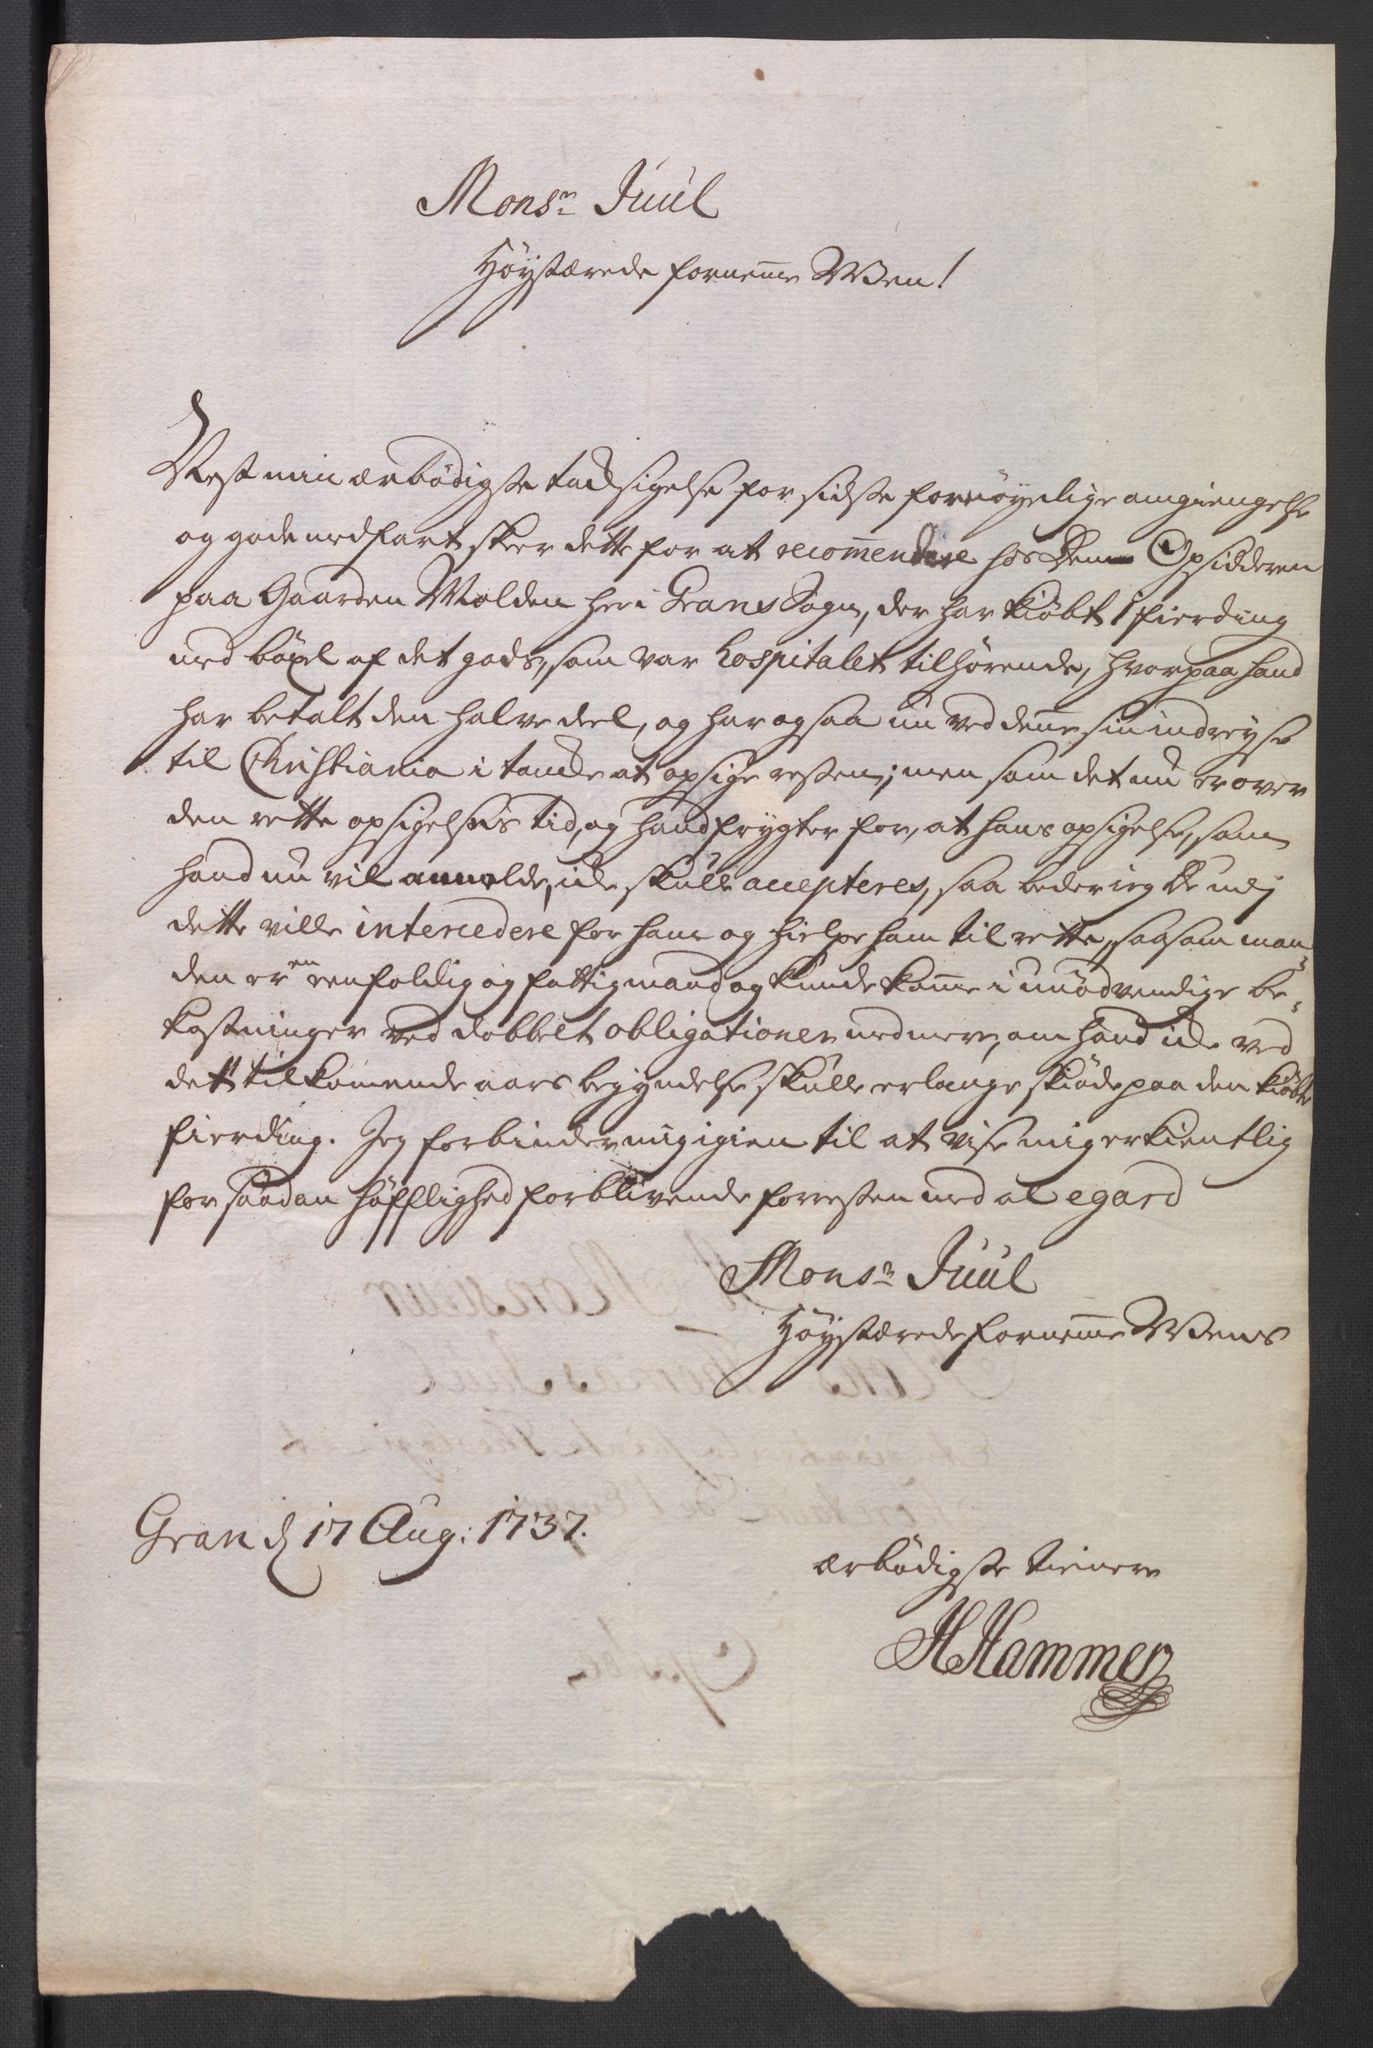 Monsr Juul
Høystærede fornemme Wen!
Nest min ærbødigste tacksigelse for sidste fornøyelige omgiengelse
og gode medfart skeer dette for at recommendere hos Dem Opsidderen
paa Gaarden Molden her i Grans Sogn, der har kiøbt 1 fierding
med böxel af det gods, som var hospitalet tilhørende, hvorpaa hand
har betalt den halve deel, og har ogsaa nu ved denne sin indreyse
til Christiania i tancke at opsige resten; men som det nu er over
den rette opsigelses tid, og hand frygter for, at hans opsigelse, som
hand nu vil anmelde, icke skulle accepteres, saa beder ieg De udj
dette ville intercedere for ham og hielpe ham til rette, saasom man-
den er en eenfoldig og fattig mand og kunde komme i unødvendige be-
kostninger ved dobbelt obligationer med mere, om hand icke ved
dett tilkomende aars begyndelse skulle erlange skiøde paa den kiøbte
fierding. Jeg forbinder mig igien til at vise mig erkientlig
for saadan höfflighed forblivende forresten med al egard
Monsr Juul
Høystærede fornemme Wens
Gran d 17 Aug: 1737.
ærbødigste tienere
H Hammer